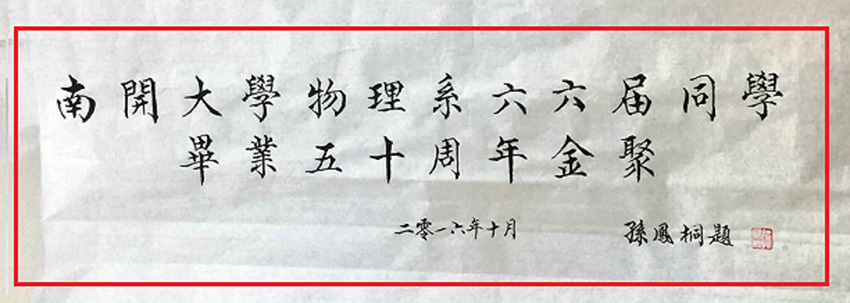 南開大學物理系六六届同學
畢業五十周年金聚
二零一六年十月
孫鳳桐題